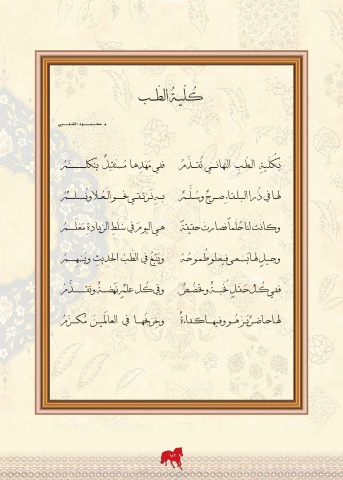 كُلّيةُ الطب
بِكُليةِ الطبِ التهاني تُقدَمُ ففي مَهدِها مُستقبلٌ يتكلمُ
لها في ذُرا العلياءِ صرحٌ وسُلَّمٌ بهِ نرتقي نحو العُلا ونُسلمُ
وكانت لنا حُلماً فصارت حقيقةً هي اليومَ في سُلطِ الريادةِ مَعلمُ
وجيلٍ لها يَسعى فيعلو طُموحُهُ ويَنبغُ في الطب الحديثِ ويُسهمُ
ففي كُلِّ حَقلٍ نُخبةٌ وتَخصُصٌ وفي كُل علمٍ نهضةٌ وتقدُّمُ
لها حاضرٌ يزهو وفيها كفاءةٌ وخريجُها في العالمين مُكرَمُ